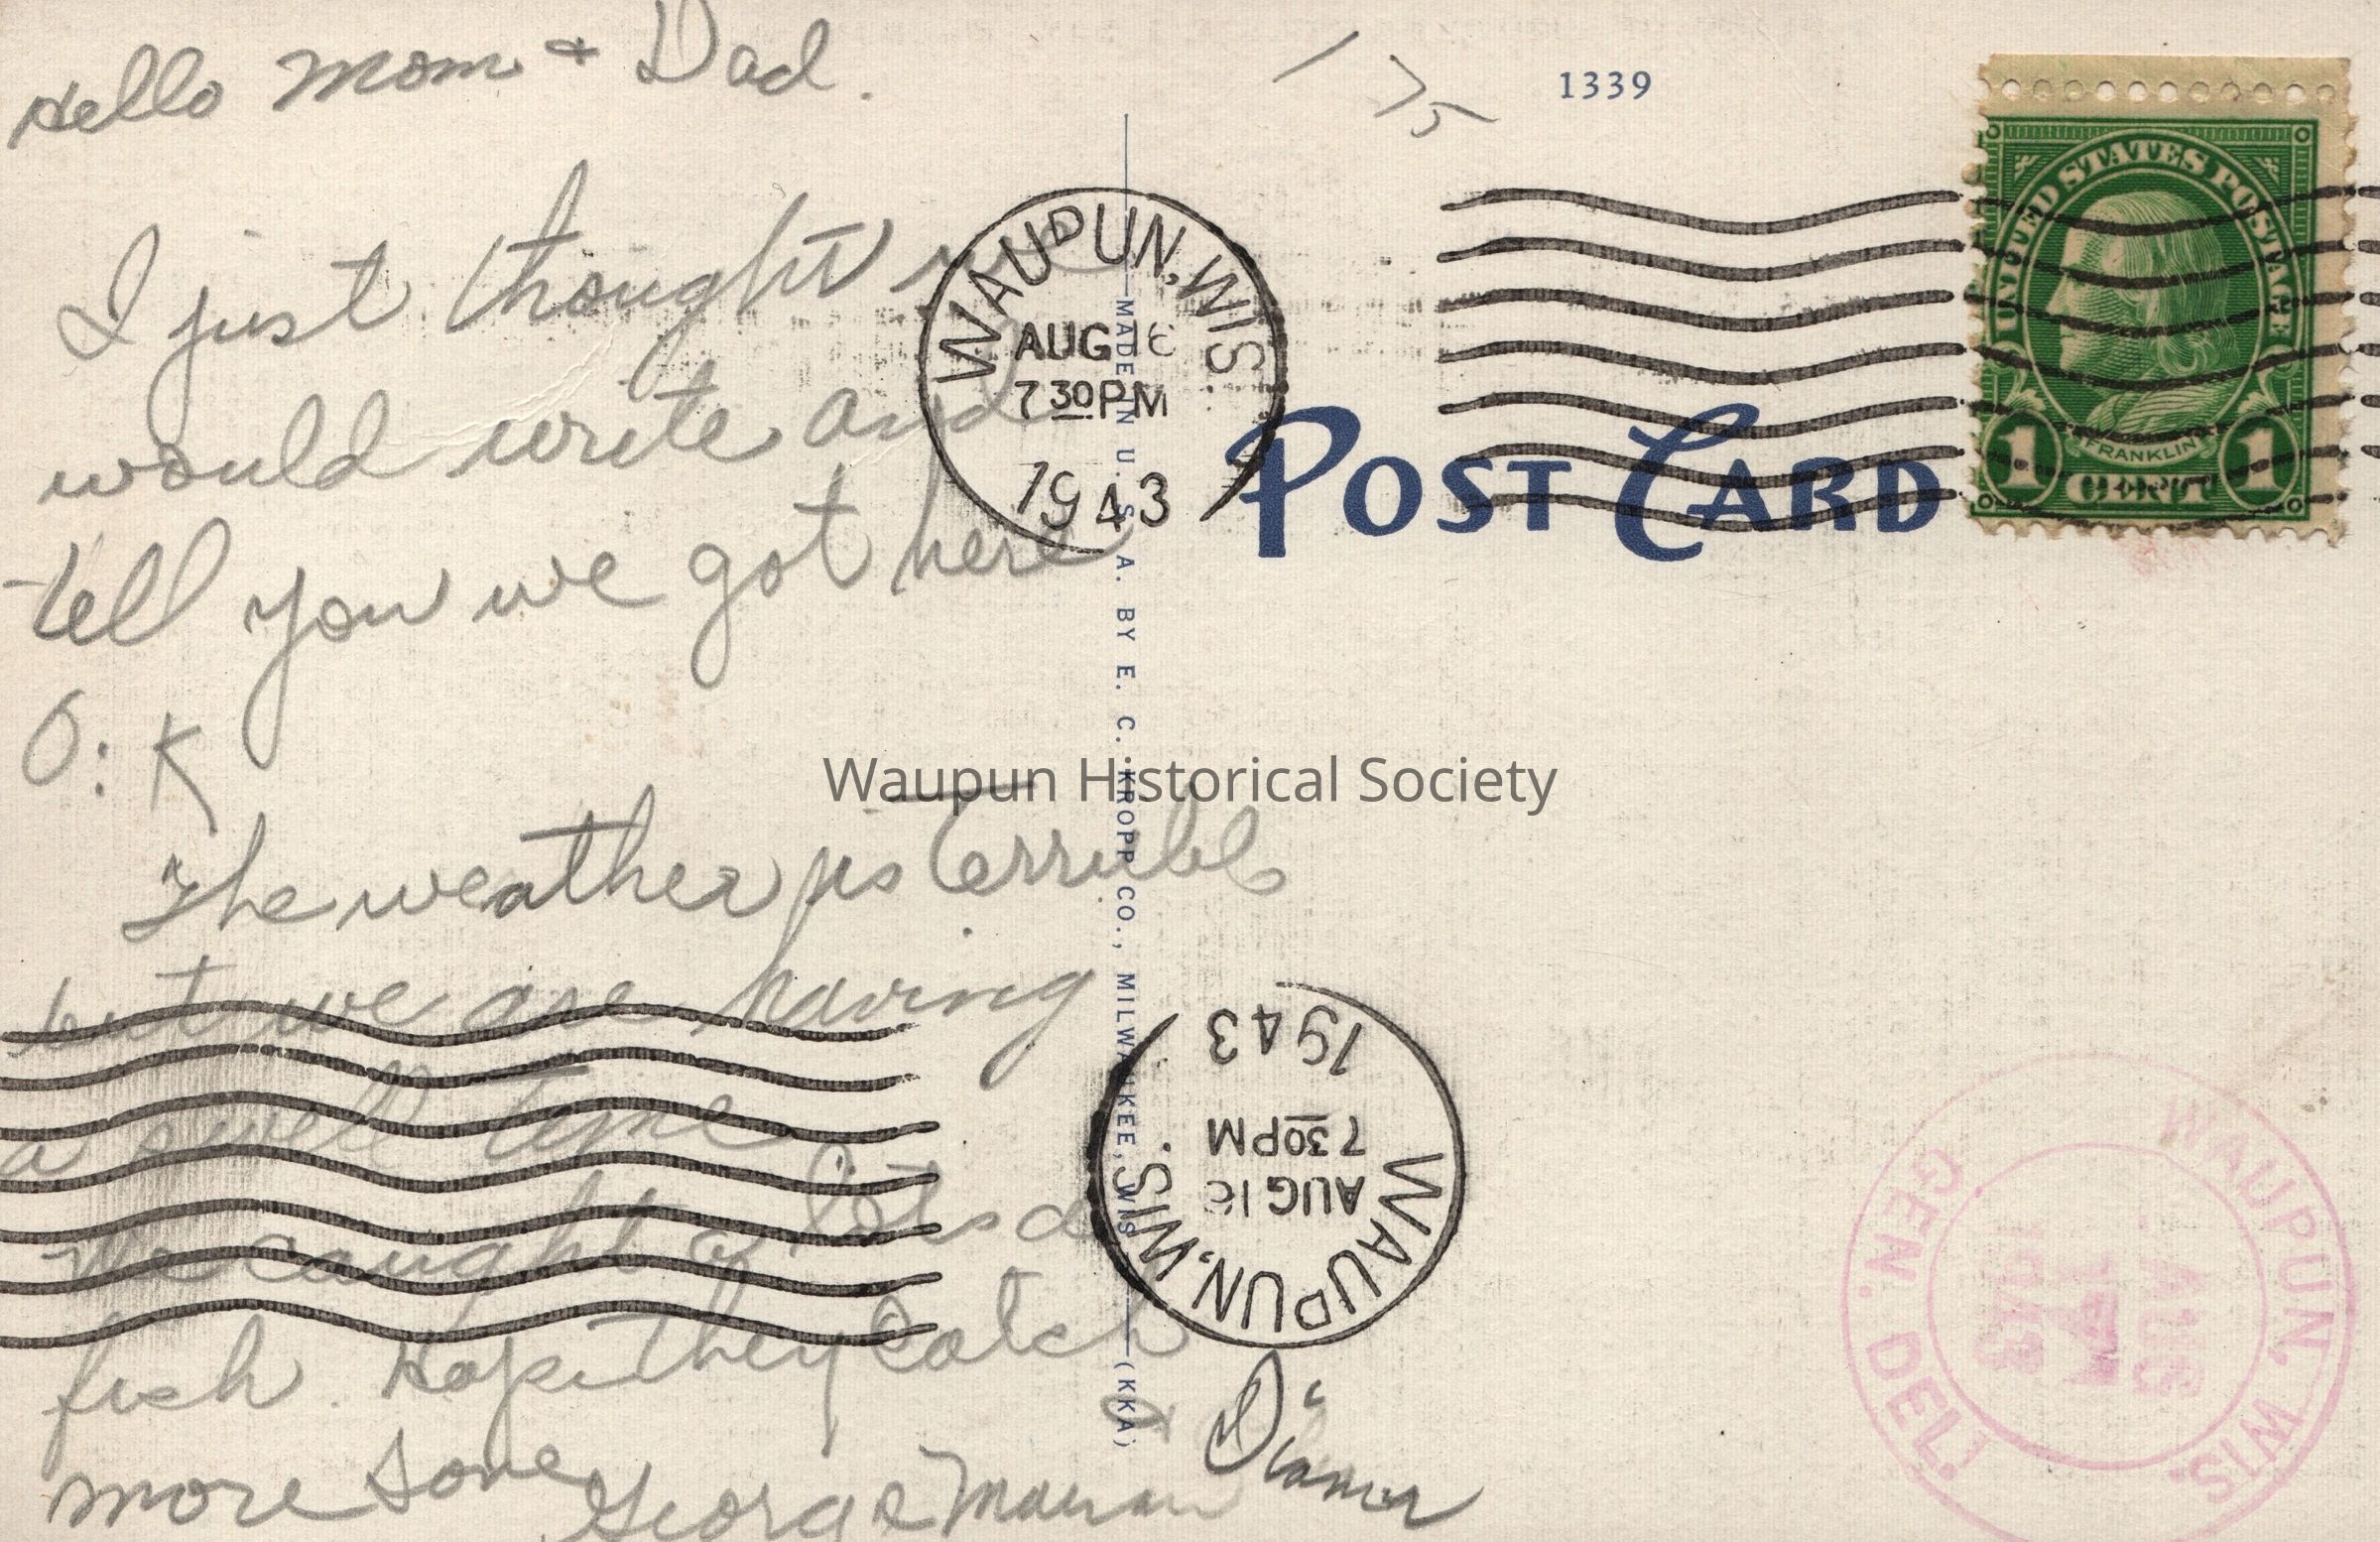 Hello Mom + Dad.
I just thought we
would write and
tell you we got here
O: K
The weather is Terrible
but we are having
a swell time
We caught of lots
fish. Hope they Catch
more Love
George Marian &
175
1339
WAUPUN, WIS.
AUG
7 30 PM
1943
POST CARD
UNITED STATES POSTAGE
FRANKLIN
1 CENT 1
MADE IN U. S. A. BY E. C. KROPP CO., MILWAUKEE, WIS
(KKA)
Waupun Historical Society
WAUPUN, WIS.
AUG
7 30 PM
1943
WAUPUN, WIS.
AUG
1943
GEN. DEL.